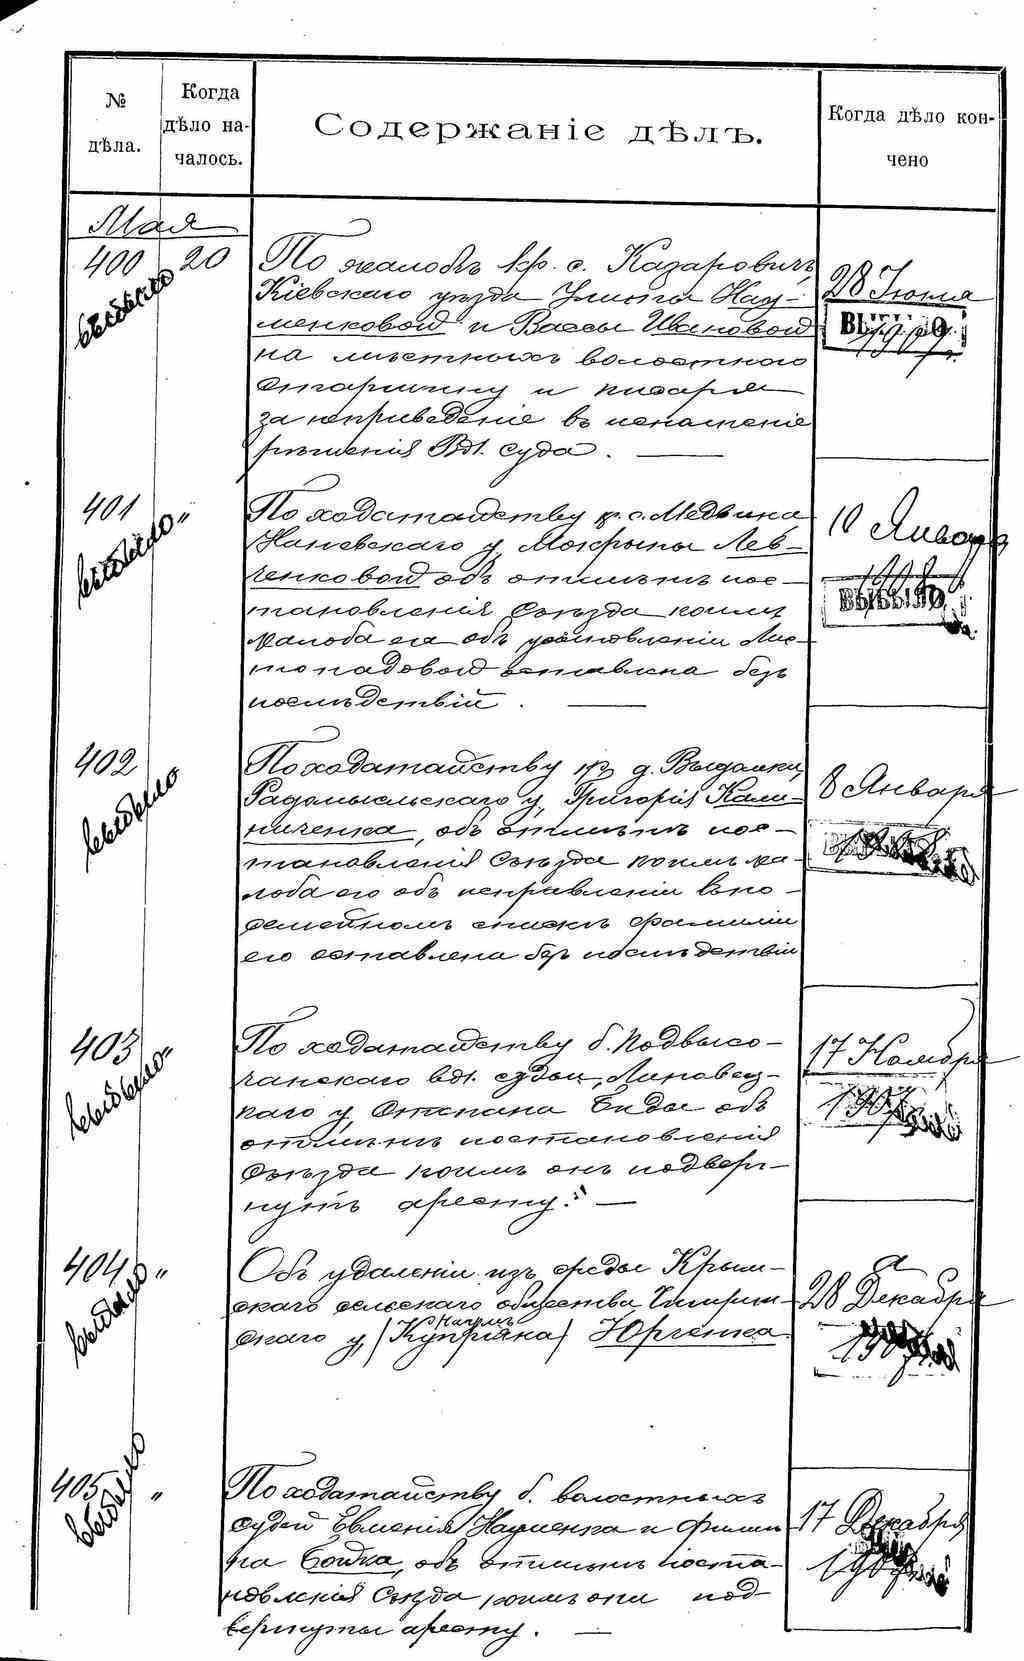 № дѣла.
Когда дѣло на-
чалось.
Содержаніе дѣлъ.
Когда дѣло кон-
чено
Мая
400 20
выбыло
По жалобѣ кр. с. Казаровичъ
Кіевскаго уѣзда Улиты Нау-
менковой и Вассы Ивановой
на мѣстныхъ волостного
старшину и писаря
за неприведеніе въ исполненіе
рѣшенія Вол. суда. —
28 Іюня
1907 г.
ВЫБЫЛО
401 "
выбыло
По ходатайству кр. с. Медвина
Каневскаго у, Мокрыны Лев-
ченковой объ отмѣнѣ пос-
тановленія Съѣзда коимъ
жалоба ея объ усыновленіи Лис-
топадовой оставлена безъ
послѣдствій. —
10 Января
1908
ВЫБЫЛО
402
выбыло
По ходатайству кр д. Выдымки,
Радомысльскаго у, Григорія Кали-
ниченка, объ отмѣнѣ пос-
тановленія Съѣзда коимъ жа-
лоба его объ исправленіи въ по-
семейномъ спискѣ фамиліи
его оставлена безъ послѣдствій
8 Января
1908
403 "
выбыло
По ходатайству б. Подвысо-
чанскаго вол. судьи, Липовец-
каго у, Степана Биды объ
отмѣнѣ постановленія
Съѣзда коимъ онъ подверг-
нутъ аресту. —
17 Ноября
1907
404 "
выбыло
Объ удаленіи изъ среды Крым-
скаго сельскаго общества Чигирин-
скаго у, (Куприяна) Юрченка
Наумъ
28 Декабря
1907 г.
405 "
выбыло
По ходатайству б. волостныхъ
судей Евменія Науменка и Филип-
па Бойка, объ отмѣнѣ поста-
новленія Съѣзда коимъ они под
вергнуты аресту. —
17 Декабря
1907